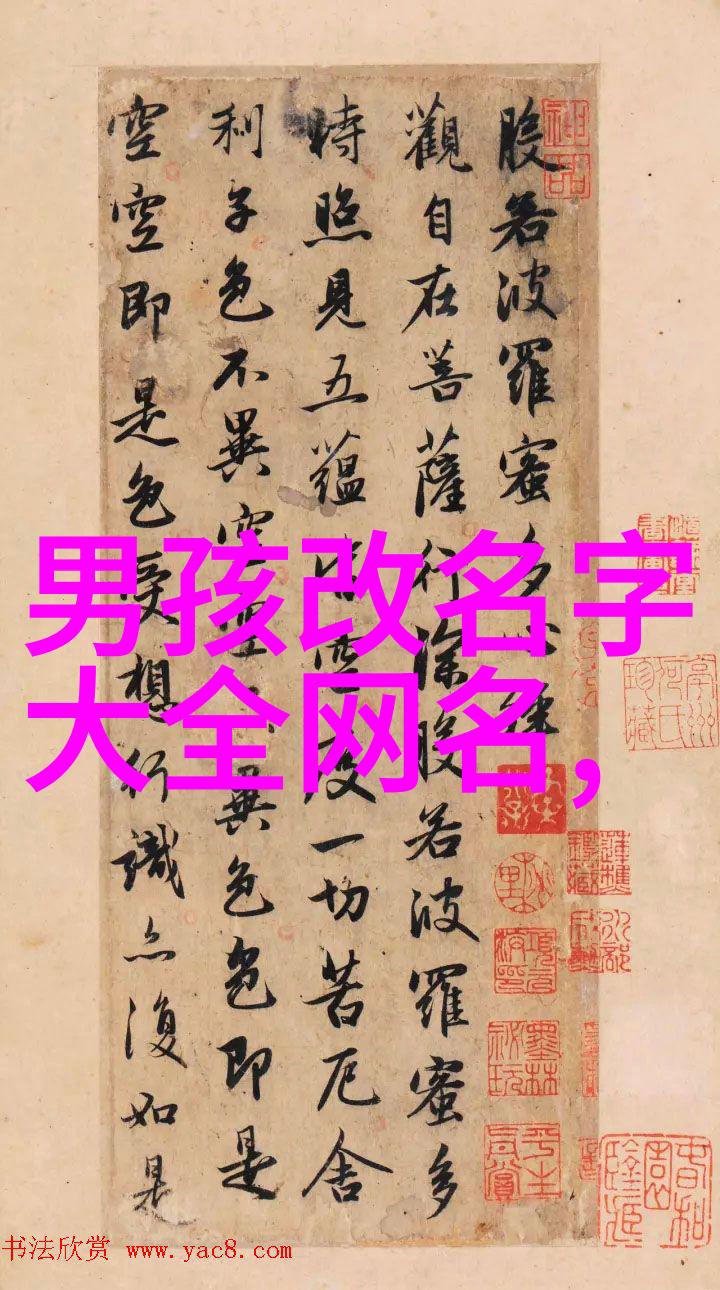 般若波羅蜜多心經
觀自在菩薩行深般若波羅蜜多
時照見五蘊皆空度一切苦厄舍
利子色不異空空不異色色即是
空空即是色受想行識亦復如是
男孩改名字
大全网名,
书法欣赏 www.yac8.com